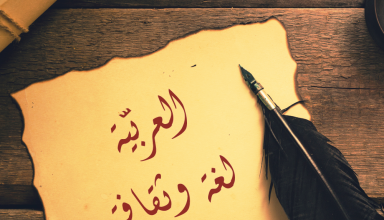 العربيّة
لغة وثقافة